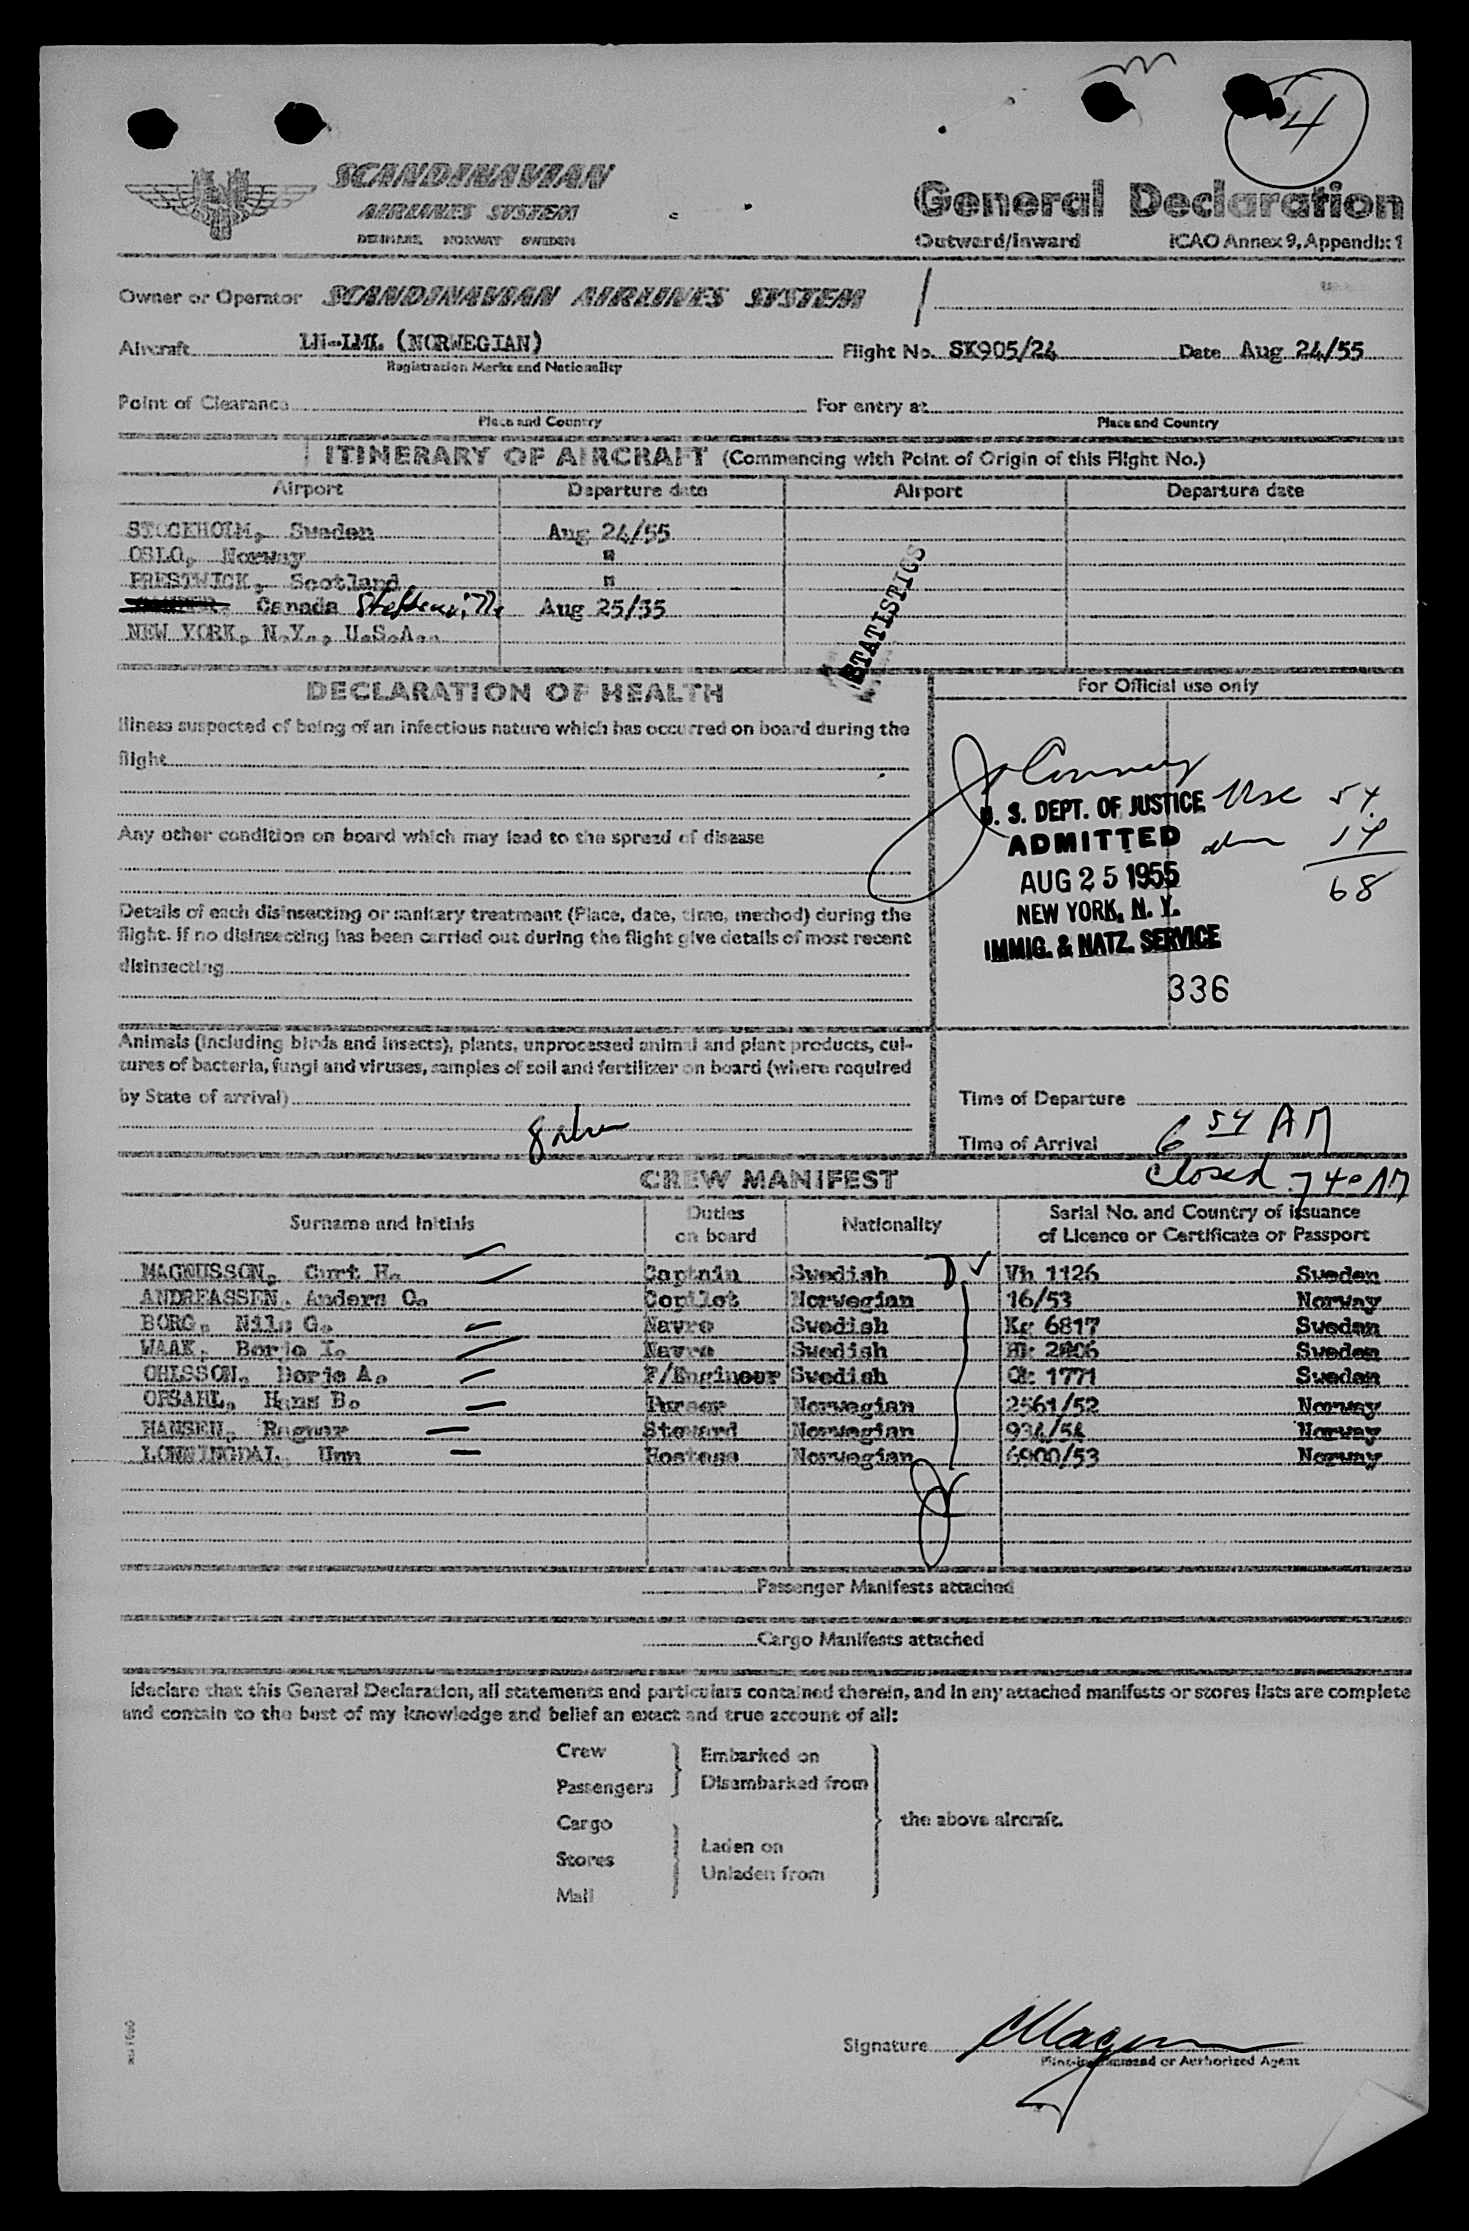 4
SCANDINAVIAN
AIRLINES SYSTEM
DENMARK NORWAY SWEDEN
General Declaration
Outward/Inward ICAO Annex 9, Appendix 1
Owner or Operator SCANDINAVIAN AIRLINES SYSTEM
Aircraft LN-LML (NORWEGIAN) Flight No. SK905/24 Date Aug 24/55
Registration Marks and Nationality
Point of Clearance For entry at
Place and Country Place and Country
ITINERARY OF AIRCRAFT (Commencing with Point of Origin of this Flight No.)
Airport Departure date Airport Departure date
STOCKHOLM, Sweden Aug 24/55
OSLO, Norway "
PRESTWICK, Scotland "
Canada Aug 25/55
NEW YORK, N.Y., U.S.A.
STATISTICS
DECLARATION OF HEALTH
Illness suspected of being of an infectious nature which has occurred on board during the
flight
Any other condition on board which may lead to the spread of disease
Details of each disinsecting or sanitary treatment (Place, date, time, method) during the
flight. If no disinsecting has been carried out during the flight give details of most recent
disinsecting
Animals (including birds and insects), plants, unprocessed animal and plant products, cul-
tures of bacteria, fungi and viruses, samples of soil and fertilizer on board (where required
by State of arrival)
For Official use only
U. S. DEPT. OF JUSTICE
54
ADMITTED
14
AUG 25 1955
68
NEW YORK, N. Y.
IMMIG. & NATZ. SERVICE
336
Time of Departure
Time of Arrival 6 54 AM
Closed 7 40 AM
CREW MANIFEST
Surname and Initials Duties on board Nationality Serial No. and Country of issuance of Licence or Certificate or Passport
MAGNUSSON, Curt H. Captain Swedish Vh 1126 Sweden
ANDREASSEN, Anders O. Copilot Norwegian 16/53 Norway
BORG, Nils G. Navro Swedish Kg 6817 Sweden
WAAK, Borje I. Navro Swedish 2806 Sweden
OHLSSON, Borje A. F/Engineer Swedish 1771 Sweden
OPSAHL, Hans B. Purser Norwegian 2561/52 Norway
HANSEN, Ragnar Steward Norwegian 934/54 Norway
LONNINGDAL, Unn Hostess Norwegian 6900/53 Norway
Passenger Manifests attached
Cargo Manifests attached
I declare that this General Declaration, all statements and particulars contained therein, and in any attached manifests or stores lists are complete
and contain to the best of my knowledge and belief an exact and true account of all:
Crew
Passengers
Embarked on
Disembarked from
Cargo
Stores
Mail
Laden on
Unladen from
the above aircraft.
Signature
Pilot-in-command or Authorized Agent